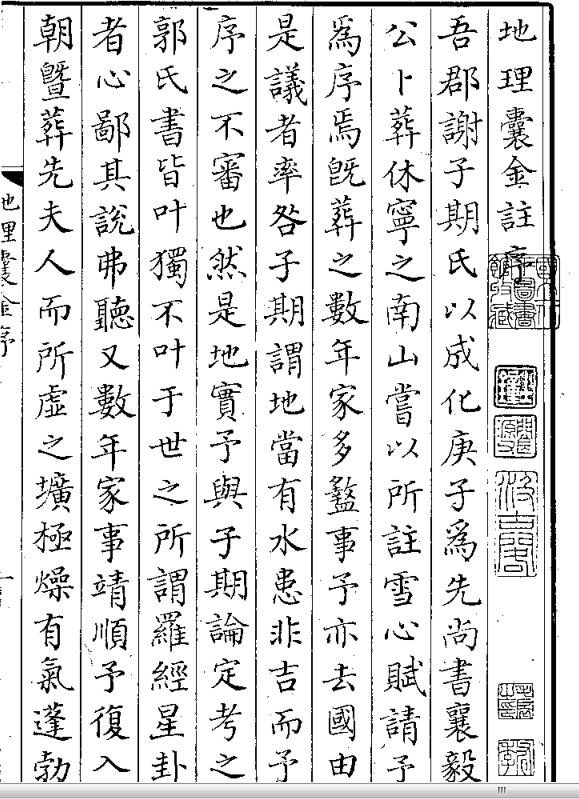 地理囊金註序
吾郡謝子期氏以成化庚子爲先尚書襄毅
公卜葬休寧之南山嘗以所註雪心賦請予
爲序焉旣葬之數年家多盭事予亦去國由
是議者率咎子期謂地當有水患非吉而予
序之不審也然是地實予與子期論定考之
郭氏書皆叶獨不叶于世之所謂羅經星卦
者心鄙其說弗聽又數年家事靖順予復入
朝曁葬先夫人而所虛之壙極燥有氣蓬勃
地理囊金序